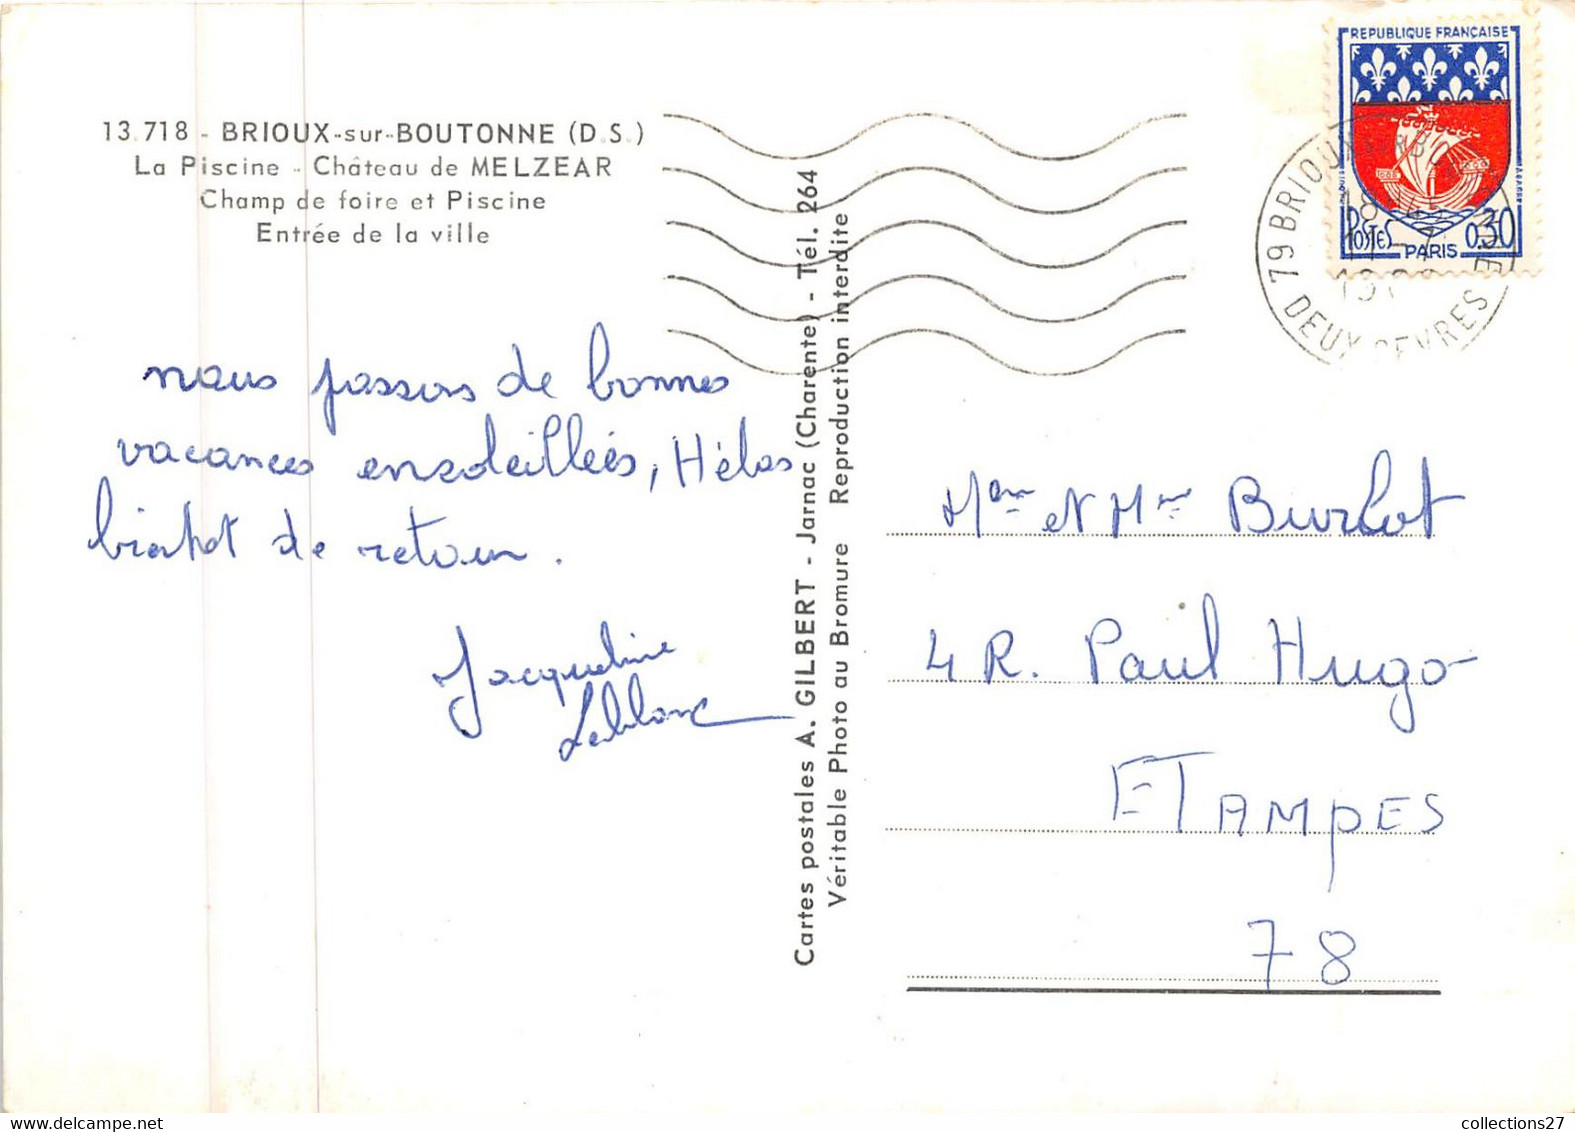 13.718 - BRIOUX-sur-BOUTONNE (D.S.)
La Piscine - Château de MELZEAR
Champ de foire et Piscine
Entrée de la ville
nous passons de bonnes
vacances ensoleillées, Hélas
bientôt de retour.
Jacqueline
Leblanc
Cartes postales A. GILBERT - Jarnac (Charente) - Tél. 264
Véritable Photo au Bromure Reproduction interdite
REPUBLIQUE FRANÇAISE
POSTES PARIS 0,30
79 BRIOUX
DEUX SEVRES
18
et Mme Burlot
4 R. Paul Hugo
ETAMPES
78
collections27